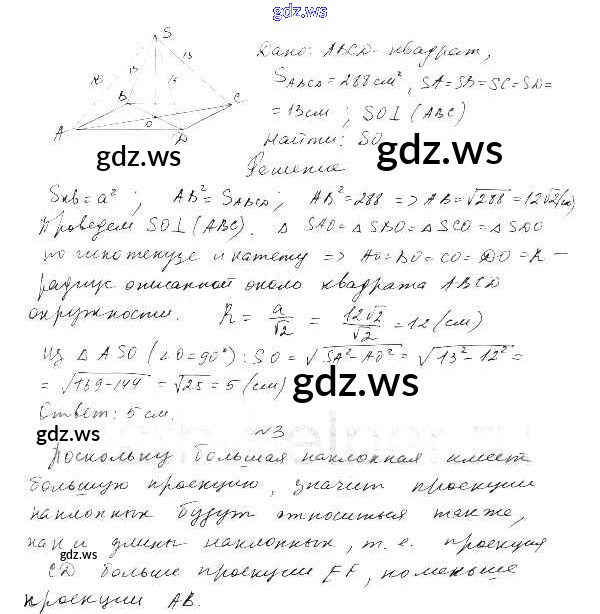 gdz.ws
S
13
13
13
13
B
C
A
O
D
Дано: ABCD - квадрат,
S_ABCD = 288 см², SA=SB=SC=SD=
= 13 см ; SO⊥(ABC)
Найти: SO
gdz.ws
gdz.ws
Решение
Sкв = a² ; AB² = S_ABCD ; AB² = 288 => AB = √288 = 12√2 (см)
Проведем SO⊥(ABC). △SAO = △SBO = △SCO = △SDO
по гипотенузе и катету => AO=BO=CO=DO=R –
радиус описанной около квадрата ABCD
окружности. R = a/√2 = 12√2/√2 = 12 (см)
Из △ASO (∠O=90°): SO = √SA²-AO² = √13²-12² =
= √169-144 = √25 = 5 (см)
gdz.ws
Ответ: 5 см.
gdz.ws
gdz.ws
№3
Поскольку большая наклонная имеет
большую проекцию, значит проекции
наклонных будут относиться также,
как и длины наклонных, т.е. проекция
gdz.ws
CD больше проекции EF, но меньше
проекции AB.
gdz.ws